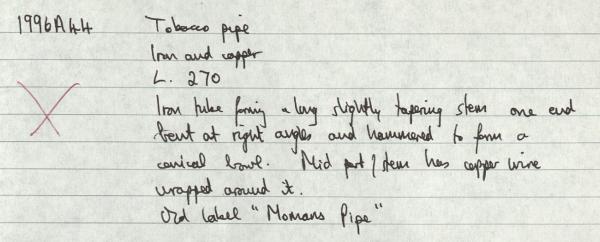 1996A44 Tobacco pipe
Iron and copper
L. 270
Iron tube forming a long slightly tapering stem one end
bent at right angles and hammered to form a
conical bowl. Mid part / stem has copper wire
wrapped around it.
Old label "Momans Pipe"